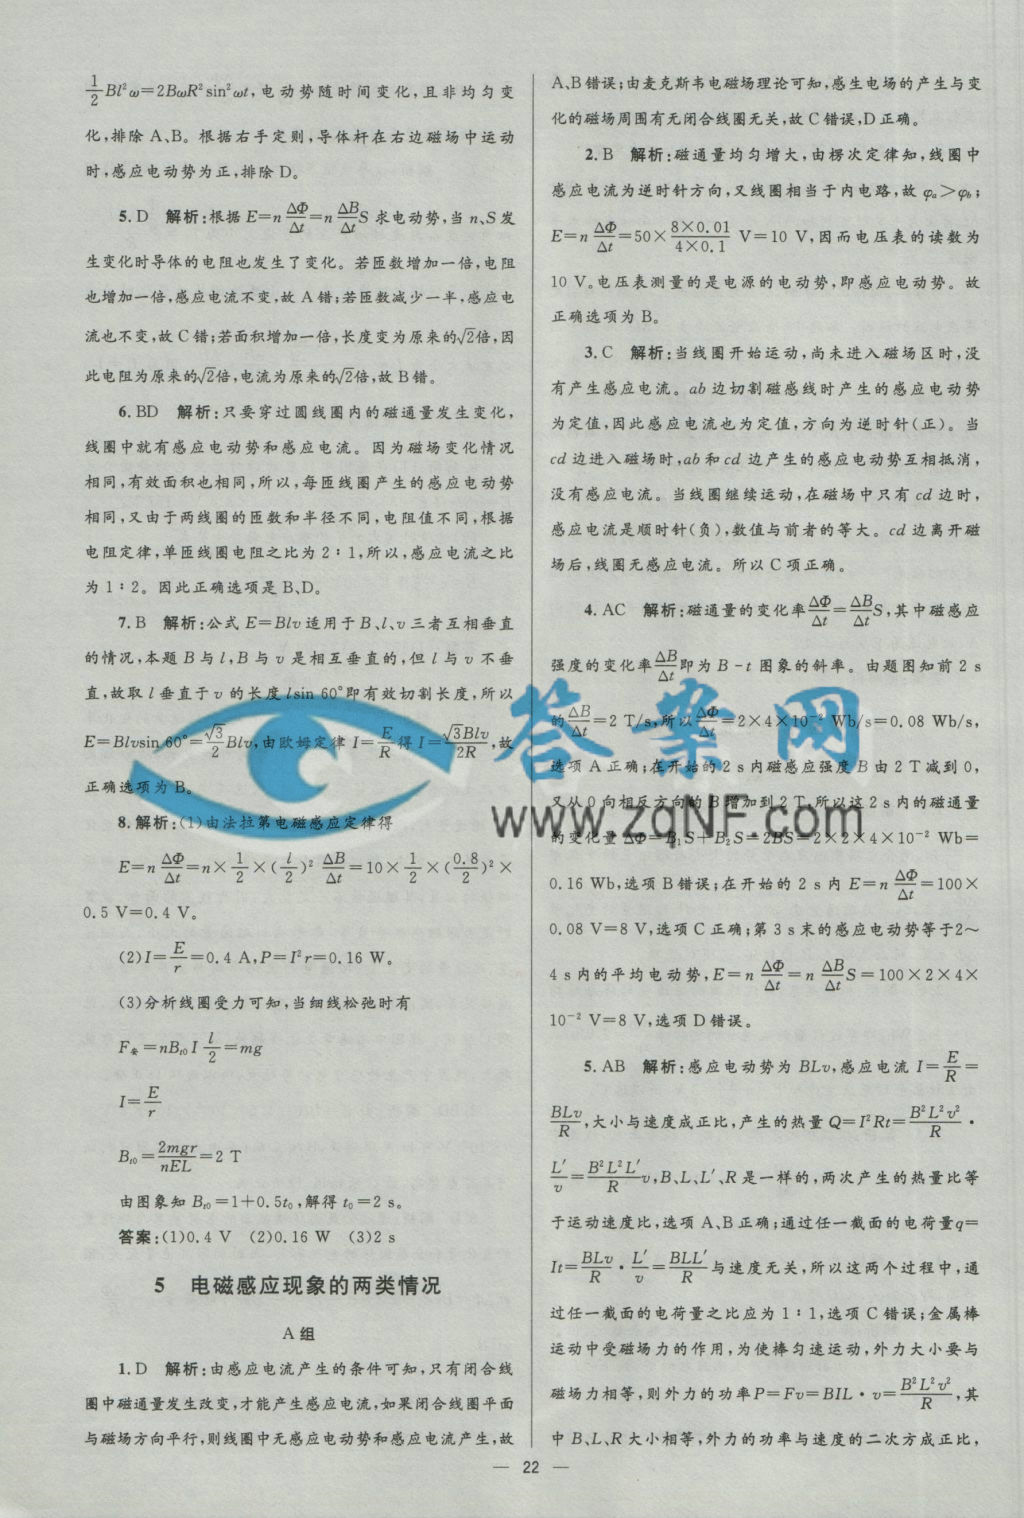 $\frac{1}{2}Bl^2ω=2BωR^2\sin^2ωt$,电动势随时间变化,且非均匀变
化,排除A、B。根据右手定则,导体杆在右边磁场中运动
时,感应电动势为正,排除D。
5. D 解析:根据$E=n\frac{ΔΦ}{Δt}=n\frac{ΔB}{Δt}S$求电动势,当n、S发
生变化时导体的电阻也发生了变化。若匝数增加一倍,电阻
也增加一倍,感应电流不变,故A错;若匝数减少一半,感应电
流也不变,故C错;若面积增加一倍,长度变为原来的$\sqrt{2}$倍,因
此电阻为原来的$\sqrt{2}$倍,电流为原来的$\sqrt{2}$倍,故B错。
6. BD 解析:只要穿过圆线圈内的磁通量发生变化,
线圈中就有感应电动势和感应电流。因为磁场变化情况
相同,有效面积也相同,所以,每匝线圈产生的感应电动势
相同,又由于两线圈的匝数和半径不同,电阻值不同,根据
电阻定律,单匝线圈电阻之比为2∶1,所以,感应电流之比
为1∶2。因此正确选项是B、D。
7. B 解析:公式E=Blv适用于B、l、v三者互相垂直
的情况,本题B与l,B与v是相互垂直的,但l与v不垂
直,故取l垂直于v的长度lsin 60°即有效切割长度,所以
$E=Blv\sin 60°=\frac{\sqrt{3}}{2}Blv$,由欧姆定律$I=\frac{E}{R}$得$I=\frac{\sqrt{3}Blv}{2R}$,故
正确选项为B。
8. 解析:(1)由法拉第电磁感应定律得
$E=n\frac{ΔΦ}{Δt}=n×\frac{1}{2}×(\frac{l}{2})^2\frac{ΔB}{Δt}=10×\frac{1}{2}×(\frac{0.8}{2})^2×$
0.5 V=0.4 V。
(2)$I=\frac{E}{r}=0.4$ A,$P=I^2r=0.16$ W。
(3)分析线圈受力可知,当细线松弛时有
$F_安=nB_{t0}I\frac{l}{2}=mg$
$I=\frac{E}{r}$
$B_{t0}=\frac{2mgr}{nEL}=2$ T
由图象知$B_{t0}=1+0.5t_0$,解得$t_0=2$ s。
答案:(1)0.4 V (2)0.16 W (3)2 s
5 电磁感应现象的两类情况
A组
1. D 解析:由感应电流产生的条件可知,只有闭合线
圈中磁通量发生改变,才能产生感应电流,如果闭合线圈平面
与磁场方向平行,则线圈中无感应电动势和感应电流产生,故
A、B错误;由麦克斯韦电磁场理论可知,感生电场的产生与变
化的磁场周围有无闭合线圈无关,故C错误,D正确。
2. B 解析:磁通量均匀增大,由楞次定律知,线圈中
感应电流为逆时针方向,又线圈相当于内电路,故$φ_a>φ_b$;
$E=n\frac{ΔΦ}{Δt}=50×\frac{8×0.01}{4×0.1}$ V=10 V,因而电压表的读数为
10 V。电压表测量的是电源的电动势,即感应电动势。故
正确选项为B。
3. C 解析:当线圈开始运动,尚未进入磁场区时,没
有产生感应电流。ab边切割磁感线时产生的感应电动势
为定值,因此感应电流也为定值,方向为逆时针(正)。当
cd边进入磁场时,ab和cd边产生的感应电动势互相抵消,
没有感应电流。当线圈继续运动,在磁场中只有cd边时,
感应电流是顺时针(负),数值与前者的等大。cd边离开磁
场后,线圈无感应电流。所以C项正确。
4. AC 解析:磁通量的变化率$\frac{ΔΦ}{Δt}=\frac{ΔB}{Δt}S$,其中磁感应
强度的变化率$\frac{ΔB}{Δt}$即为B-t图象的斜率。由题图知前2 s
的$\frac{ΔB}{Δt}=2$ T/s,所以$\frac{ΔΦ}{Δt}=2×4×10^{-2}$ Wb/s=0.08 Wb/s,
选项A正确;在开始的2 s内磁感应强度B由2 T减到0,
又从0向相反方向的B增加到2 T,所以这2 s内的磁通量
的变化量$ΔΦ=B_1S+B_2S=2BS=2×2×4×10^{-2}$ Wb=
0.16 Wb,选项B错误;在开始的2 s内$E=n\frac{ΔΦ}{Δt}=100×$
0.08 V=8 V,选项C正确;第3 s末的感应电动势等于2~
4 s内的平均电动势,$E=n\frac{ΔΦ}{Δt}=n\frac{ΔB}{Δt}S=100×2×4×$
$10^{-2}$ V=8 V,选项D错误。
5. AB 解析:感应电动势为BLv,感应电流$I=\frac{E}{R}=$
$\frac{BLv}{R}$,大小与速度成正比,产生的热量$Q=I^2Rt=\frac{B^2L^2v^2}{R}·$
$\frac{L'}{v}=\frac{B^2L^2L'}{R}v$,B、L、L'、R是一样的,两次产生的热量比等
于运动速度比,选项A、B正确;通过任一截面的电荷量q=
$It=\frac{BLv}{R}·\frac{L'}{v}=\frac{BLL'}{R}$与速度无关,所以这两个过程中,通
过任一截面的电荷量之比应为1∶1,选项C错误;金属棒
运动中受磁场力的作用,为使棒匀速运动,外力大小要与
磁场力相等,则外力的功率$P=Fv=BIL·v=\frac{B^2L^2v^2}{R}$,其
中B、L、R大小相等,外力的功率与速度的二次方成正比,
— 22 —
答案网
www.zqNF.com